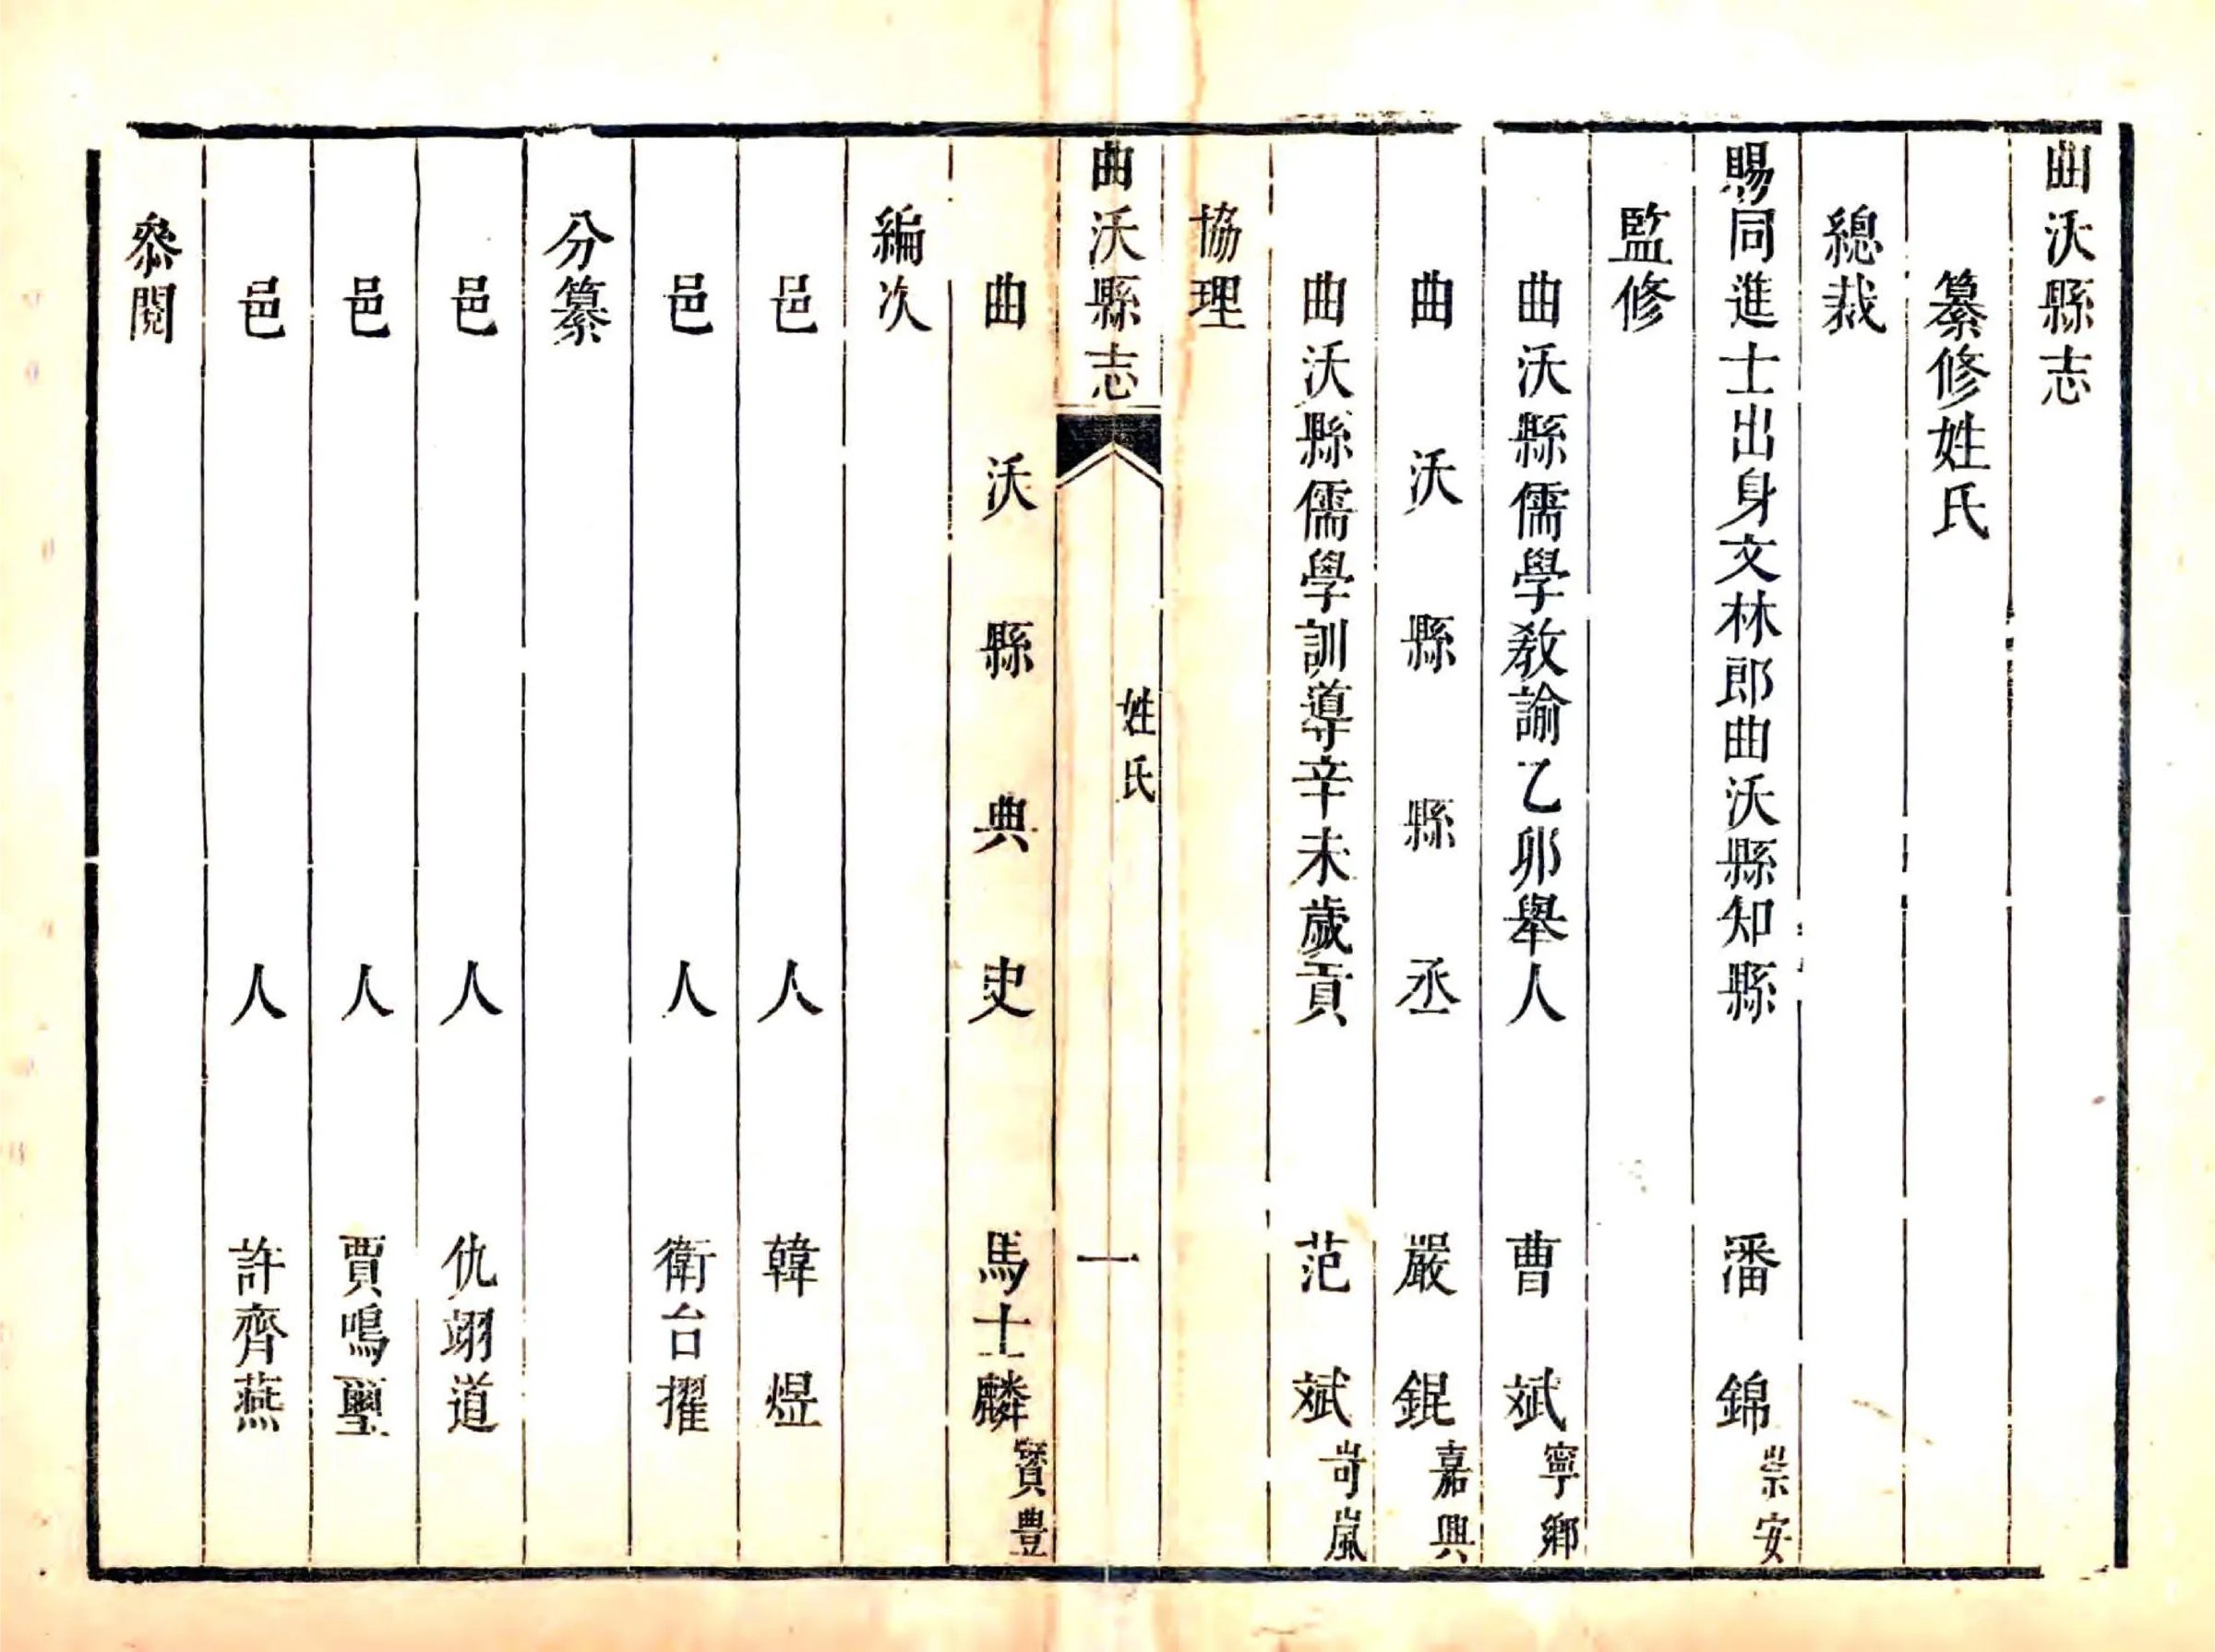 曲沃縣志
纂修姓氏
總裁
賜同進士出身文林郎曲沃縣知縣 潘錦 崇安
監修
曲沃縣儒學教諭乙卯舉人 曹斌 寧鄉
曲沃縣縣丞 嚴錕 嘉興
曲沃縣儒學訓導辛未歲貢 范斌 岢嵐
協理
曲沃縣志 姓氏 一
曲沃縣典史 馬士麟 寶豊
編次
邑人 韓煜
邑人 衛台擢
分纂
邑人 仇翊道
邑人 賈鳴璽
邑人 許齊燕
叅閱